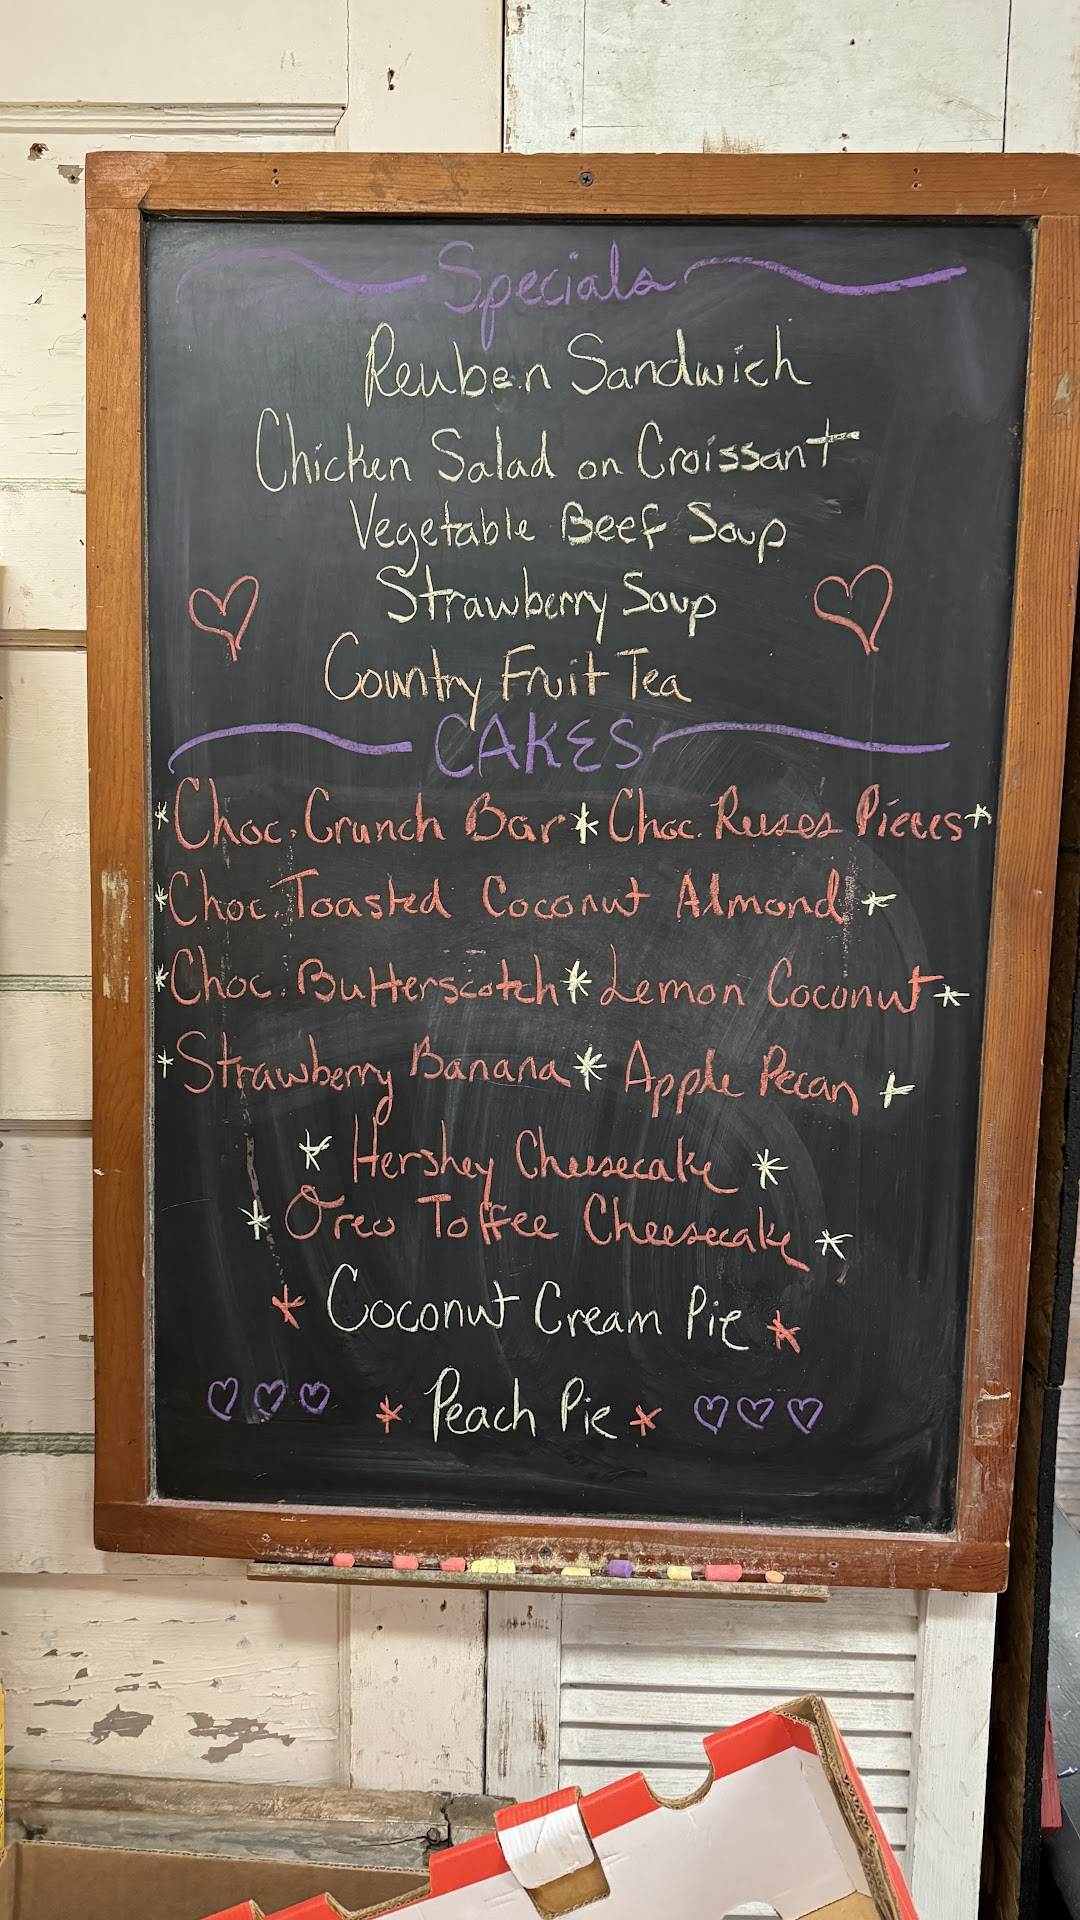 Specials
Reuben Sandwich
Chicken Salad on Croissant
Vegetable Beef Soup
Strawberry Soup
Country Fruit Tea
CAKES
*Choc. Crunch Bar * Choc. Reeses Pieces *
*Choc. Toasted Coconut Almond *
*Choc. Butterscotch * Lemon Coconut *
*Strawberry Banana * Apple Pecan *
* Hershey Cheesecake *
* Oreo Toffee Cheesecake *
* Coconut Cream Pie *
* Peach Pie *